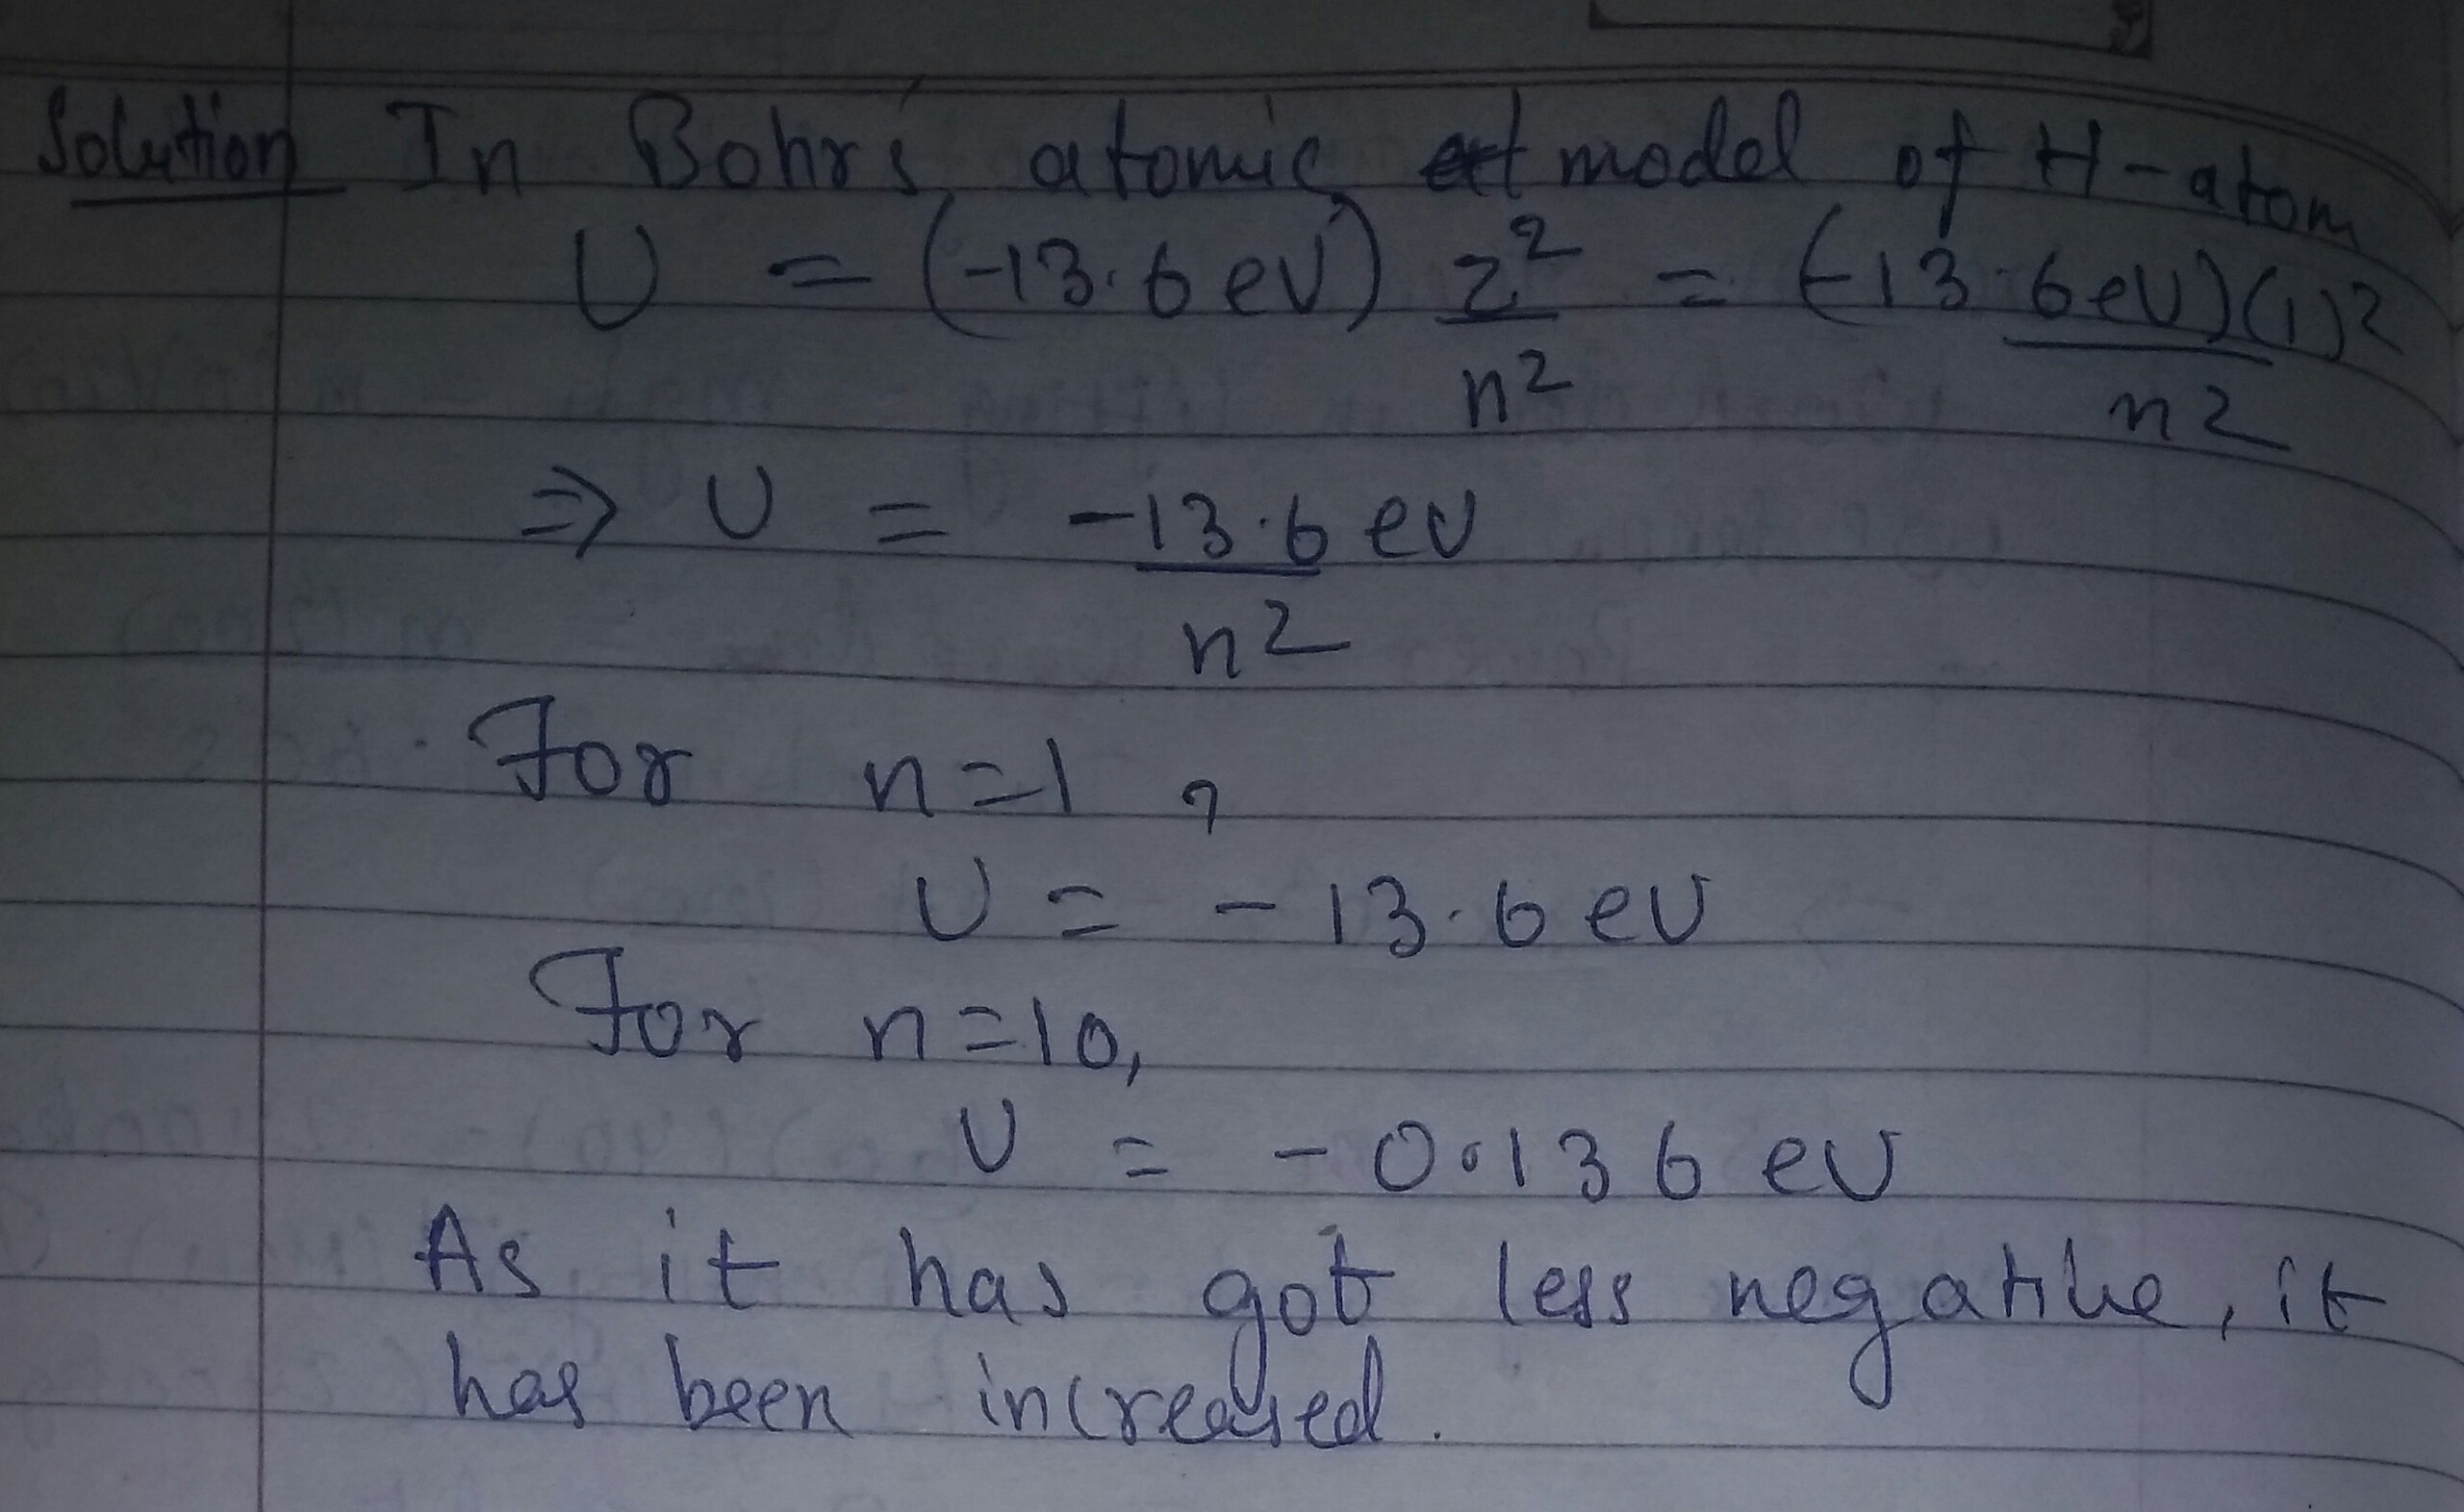 Solution In Bohr's atomic model of H-atom
U = (-13.6 eV) z²/n² = (-13.6 eV)(1)²/n²
⇒ U = -13.6 eV/n²
For n=1,
U = -13.6 eV
For n=10,
U = -0.136 eV
As it has got less negative, it
has been increased.